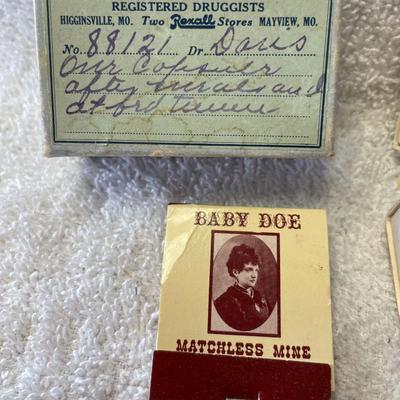 REGISTERED DRUGGISTS
HIGGINSVILLE, MO. Two Rexall Stores MAYVIEW, MO.
No. 88121 Dr. Davis
One Capsule
after meals and
at bed time
BABY DOE
MATCHLESS MINE